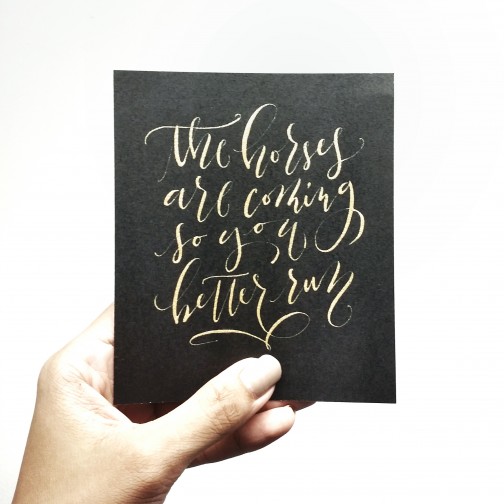 the horses
are coming
so you
better run